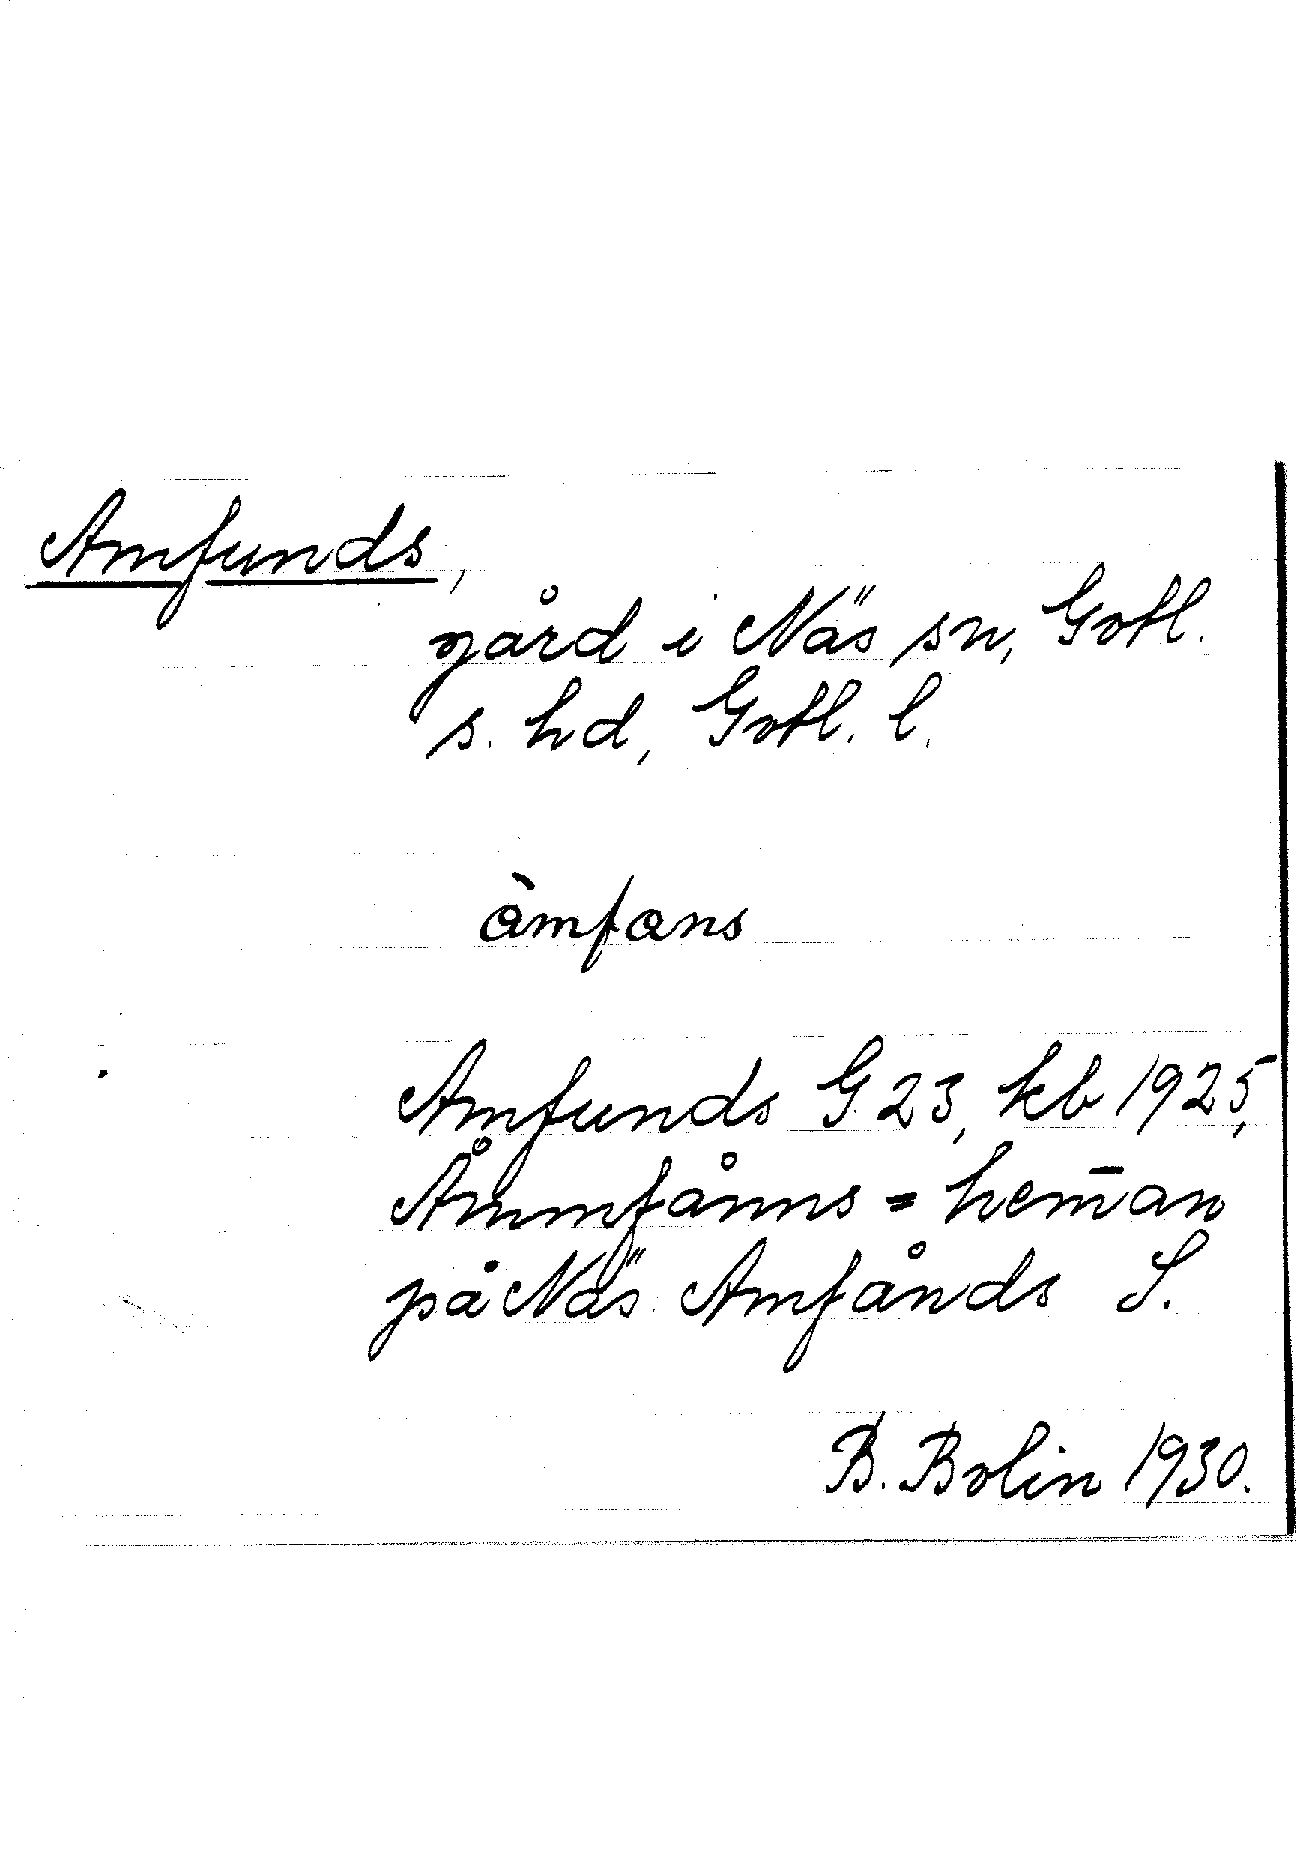 Amfunds,
gård i Näs sn, Gotl.
s. hd, Gotl. l.
àmfans
Amfunds G 23, kb 1925,
Åmmfånns = hem̄an
på Näs Amfånds S.
B. Bolin 1930.